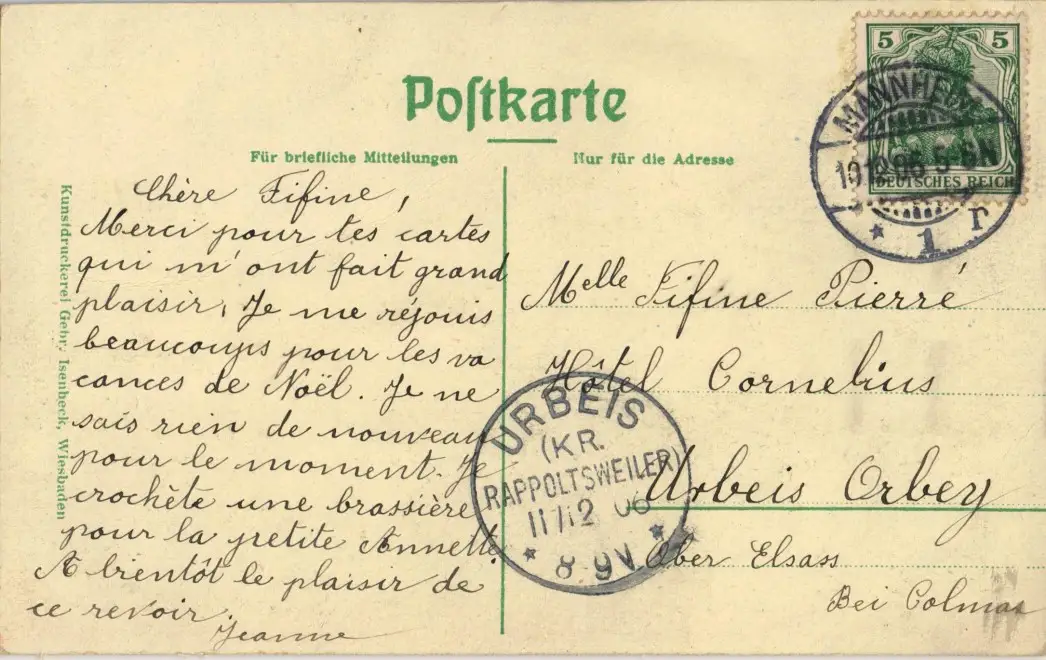 Postkarte
Für briefliche Mitteilungen
Nur für die Adresse
5 5
DEUTSCHES REICH
MANNHEIM
5-6N
* 1 r
Kunstdruckerei Gebr. Isenbeck, Wiesbaden
Chère Fifine,
Merci pour tes cartes
qui m'ont fait grand
plaisir. Je me réjouis
beaucoups pour les va
cances de Noël. Je ne
sais rien de nouveau
pour le moment. Je
crochète une brassière
pour la petite Annette.
A bientôt le plaisir de
ce revoir
Jeanne
Melle Fifine Pierré
Hôtel Cornelius
Urbeis Orbey
Ober Elsass
Bei Colmar
URBEIS
(KR.
RAPPOLTSWEILER)
11/12 06
* 8-9V. *